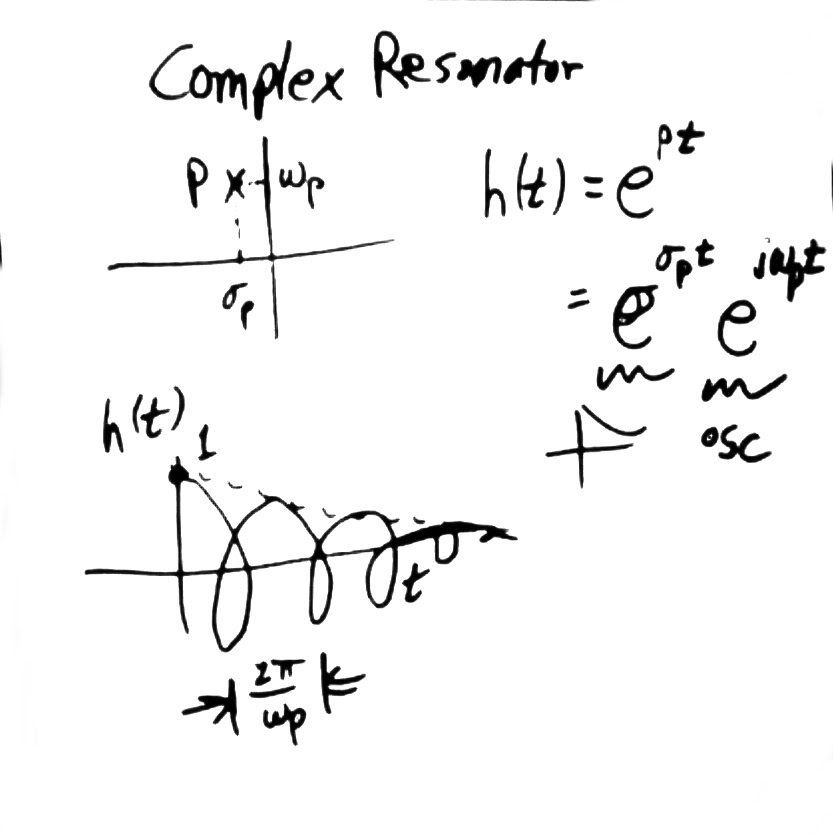 Complex Resonator
p × ωp
σp
h(t) = e^{pt}
= e^{σp t} e^{jωp t}
osc
h(t)
1
t
2π/ωp